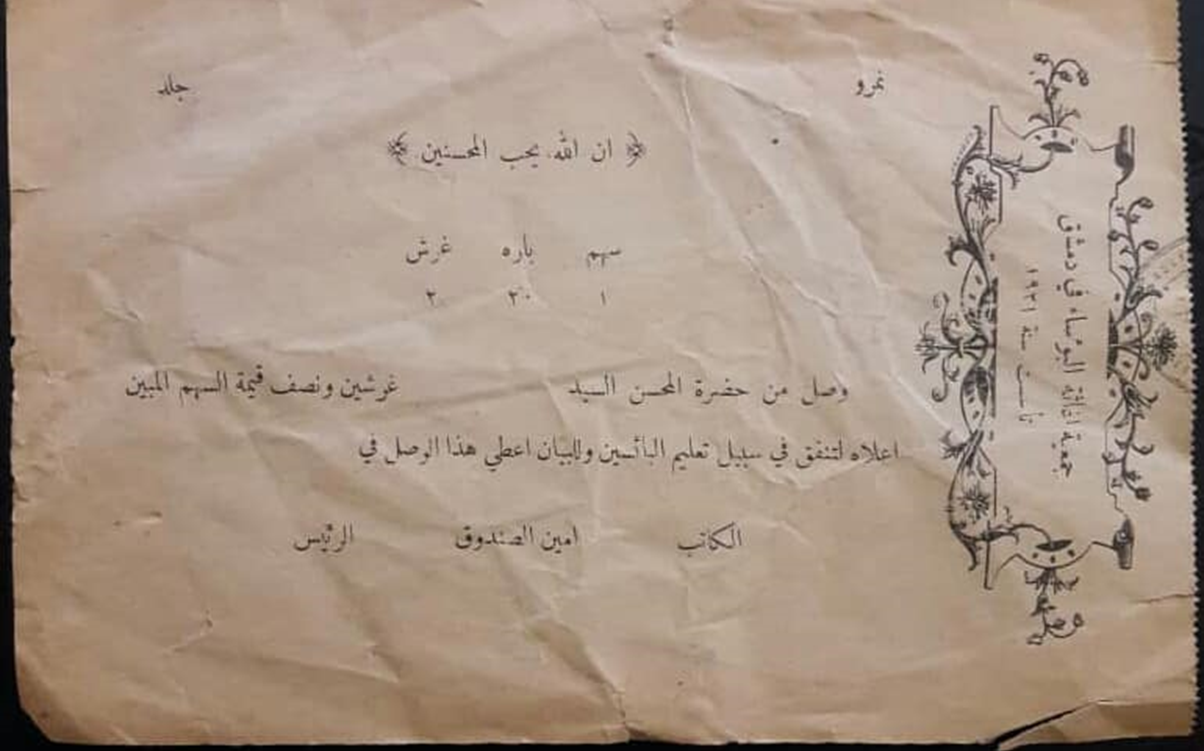 نمرو جلد
﴿ ان الله يحب المحسنين ﴾
سهم باره غرش
١ ٢٠ ٢
وصل من حضرة المحسن السيد غرشين ونصف قيمة السهم المبين
اعلاه لتنفق في سبيل تعليم البائسين وللبيان اعطي هذا الوصل في
الكاتب امين الصندوق الرئيس
جمعية اغاثة البؤساء في دمشق
تأسست سنة ١٩٣١